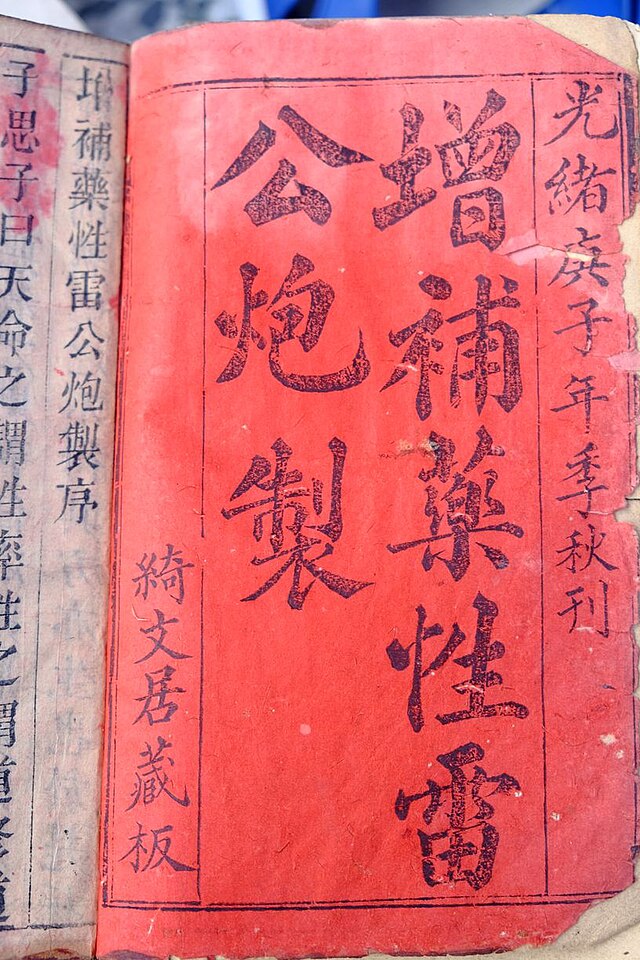 光緒庚子年季秋刊
增補藥性雷
公炮製
綺文居藏板
增補藥性雷公炮製序
子思子曰天命之謂性率性之謂道修道